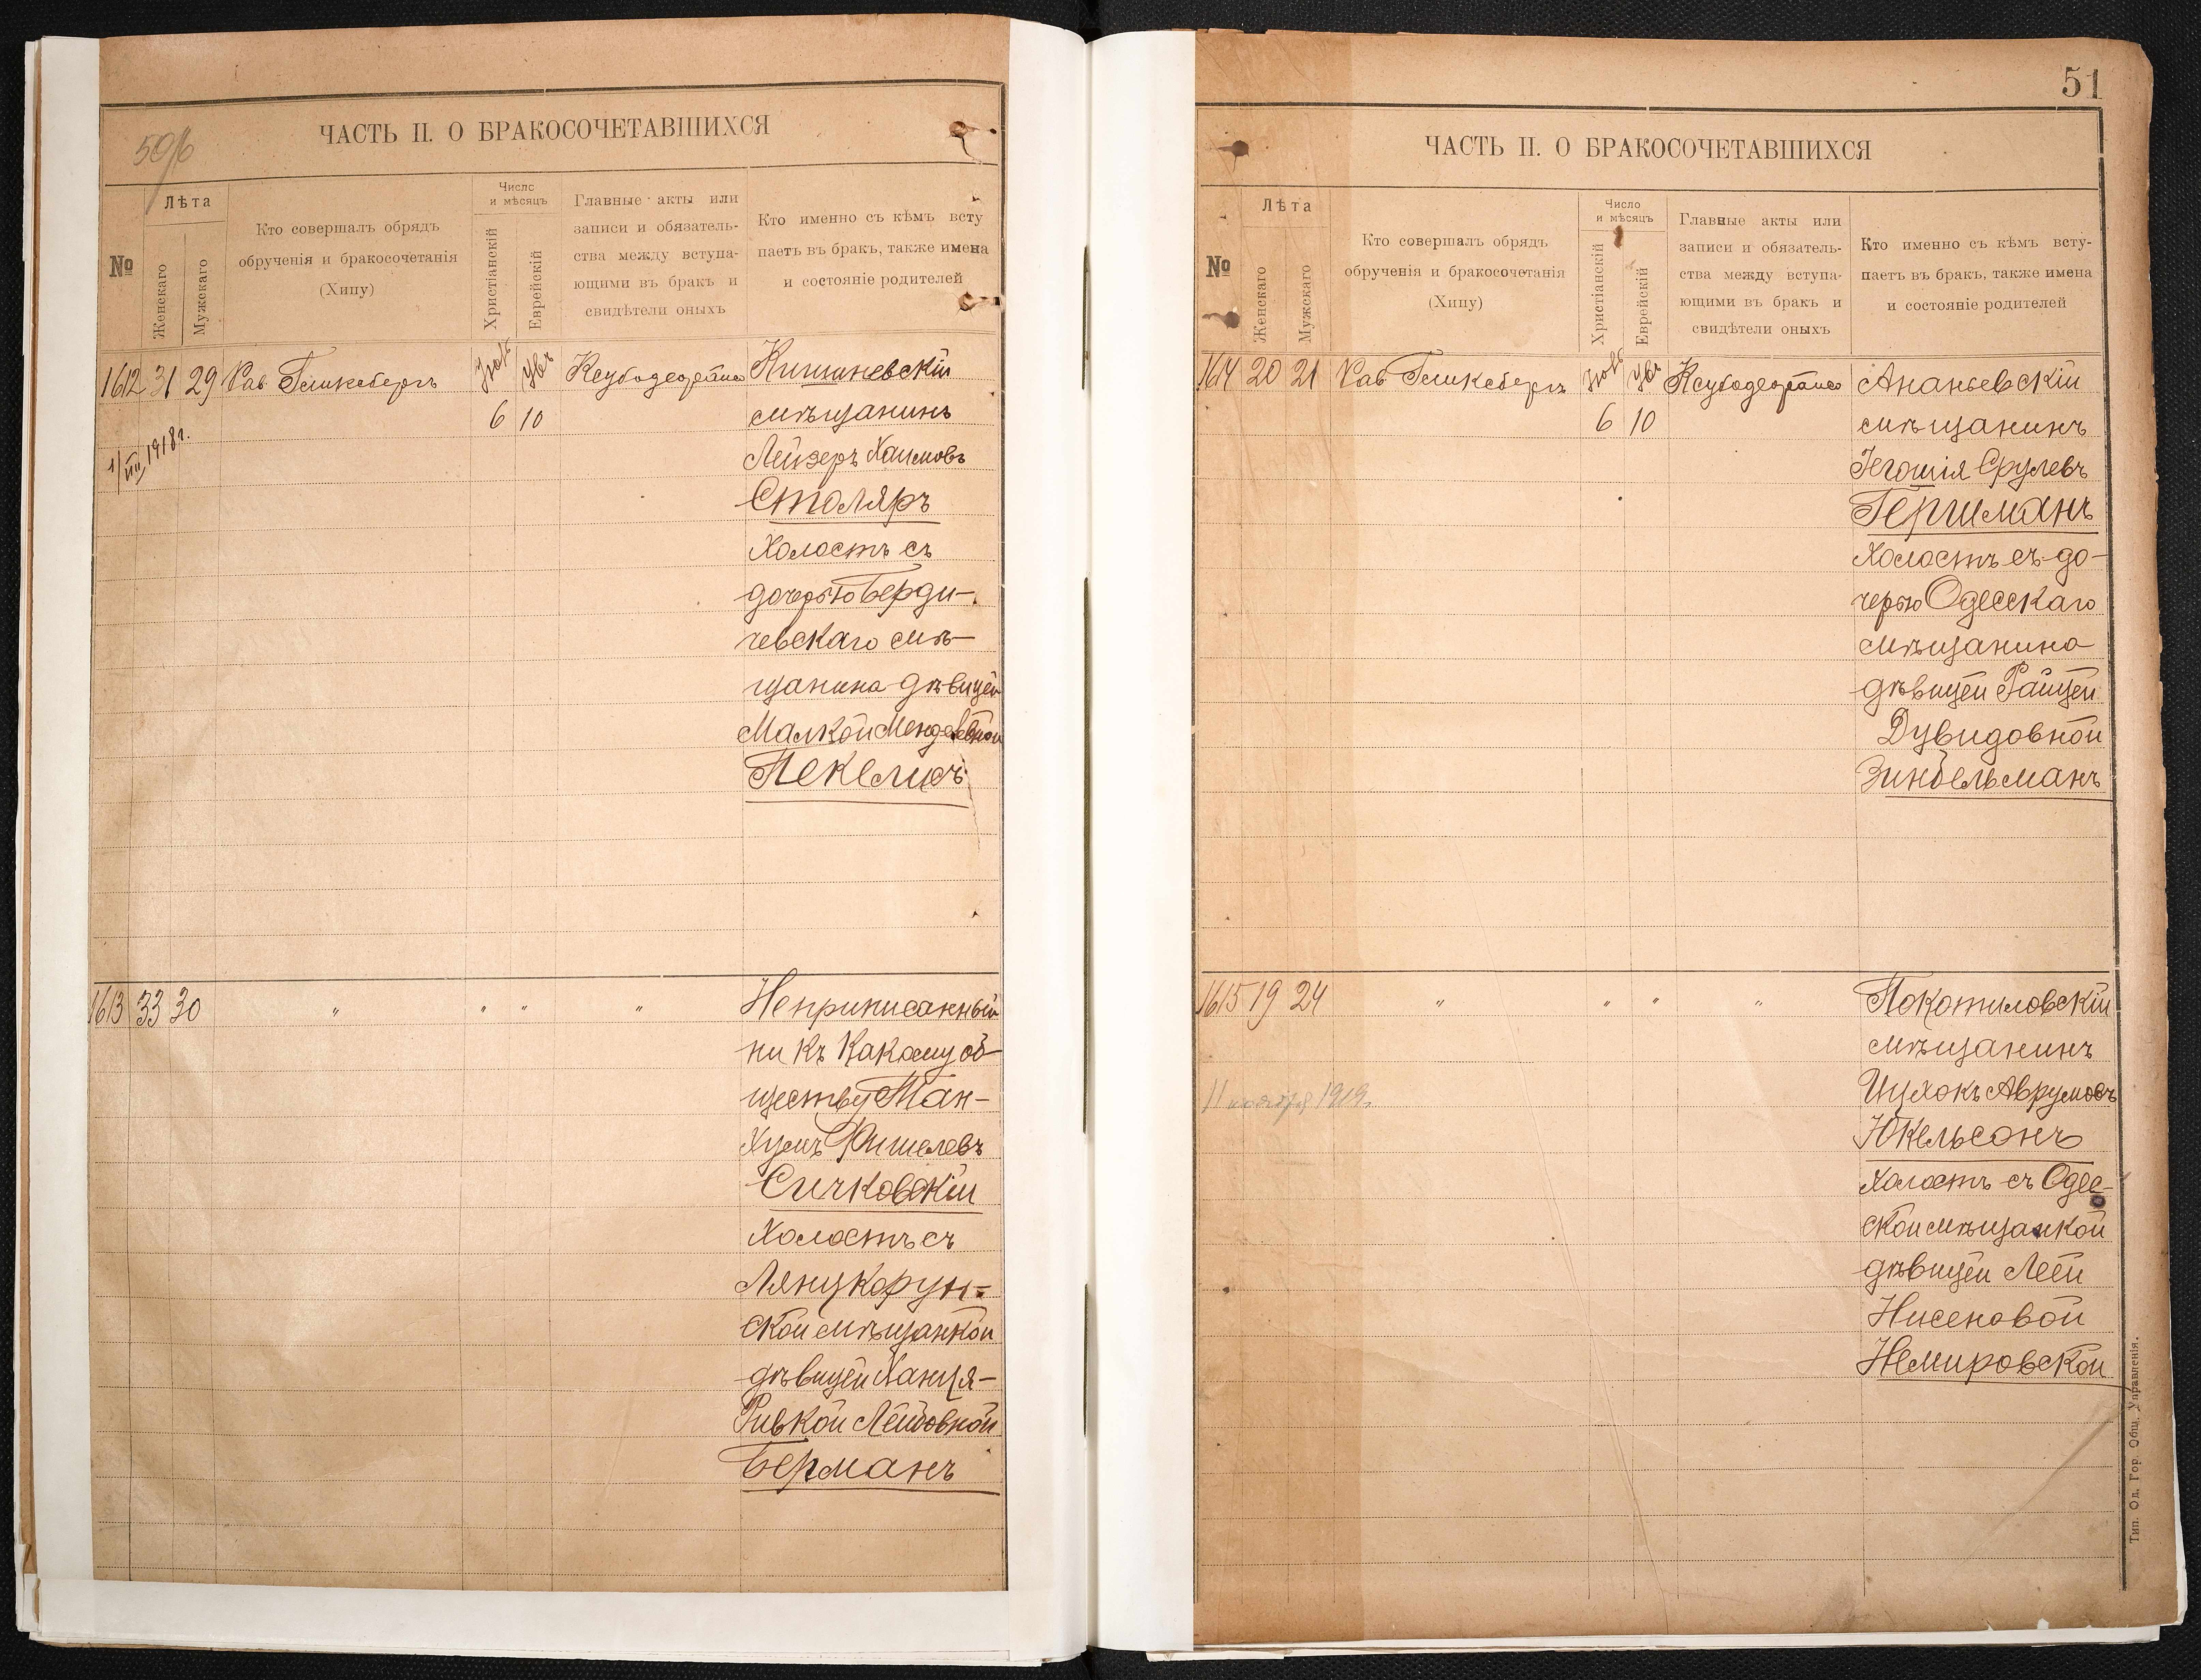 ЧАСТЬ II. О БРАКОСОЧЕТАВШИХСЯ
№
Лѣта
Женскаго
Мужескаго
Кто совершалъ обрядъ
обрученія и бракосочетанія
(Хипу)
Число
и мѣсяцъ
Христіанскій
Еврейскій
Главные акты или
записи и обязатель-
ства между вступа-
ющими въ бракъ и
свидѣтели оныхъ
Кто именно съ кѣмъ всту
паетъ въ бракъ, также имена
и состояніе родителей
1612 31 29 Рав
6 10
1/VIII 1918 г.
Кишиневскій
мѣщанинъ
Лейзеръ Хаимовъ
Столяръ
Холостъ съ
дочерью Берди-
чевскаго мѣ-
щанина дѣвицей
Малкой Менделевной
Пекелисъ
1613 33 30 " " " "
Неприписанный
ни къ какому об-
ществу Ман-
Хусъ Фишелевъ
Сичковскій
Холостъ съ
Лянцкорун-
ской мѣщанкой
дѣвицей Ханця-
Ривкой Лейбовной
Берманъ
51
ЧАСТЬ II. О БРАКОСОЧЕТАВШИХСЯ
№
Лѣта
Женскаго
Мужскаго
Кто совершалъ обрядъ
обрученія и бракосочетанія
(Хипу)
Число
и мѣсяцъ
Христіанскій
Еврейскій
Главные акты или
записи и обязатель-
ства между вступа-
ющими въ бракъ и
свидѣтели оныхъ
Кто именно съ кѣмъ всту-
паетъ въ бракъ, также имена
и состояніе родителей
1614 20 21 Рав
6 10
Ананьевскій
мѣщанинъ
Іегошія Срулевъ
Гершманъ
Холостъ съ до-
черью Одесскаго
мѣщанина
дѣвицей Райцей
Дувидовной
Зинбельманъ
1615 19 24 " " " "
11 ноября 1919 г.
Покотиловскій
мѣщанинъ
Ицхокъ Аврумовъ
Юкельсонъ
Холостъ съ Одес-
ской мѣщанкой
дѣвицей Леей
Нисеновой
Немировской
Тип. Од. Гор. Общ. Управленія.